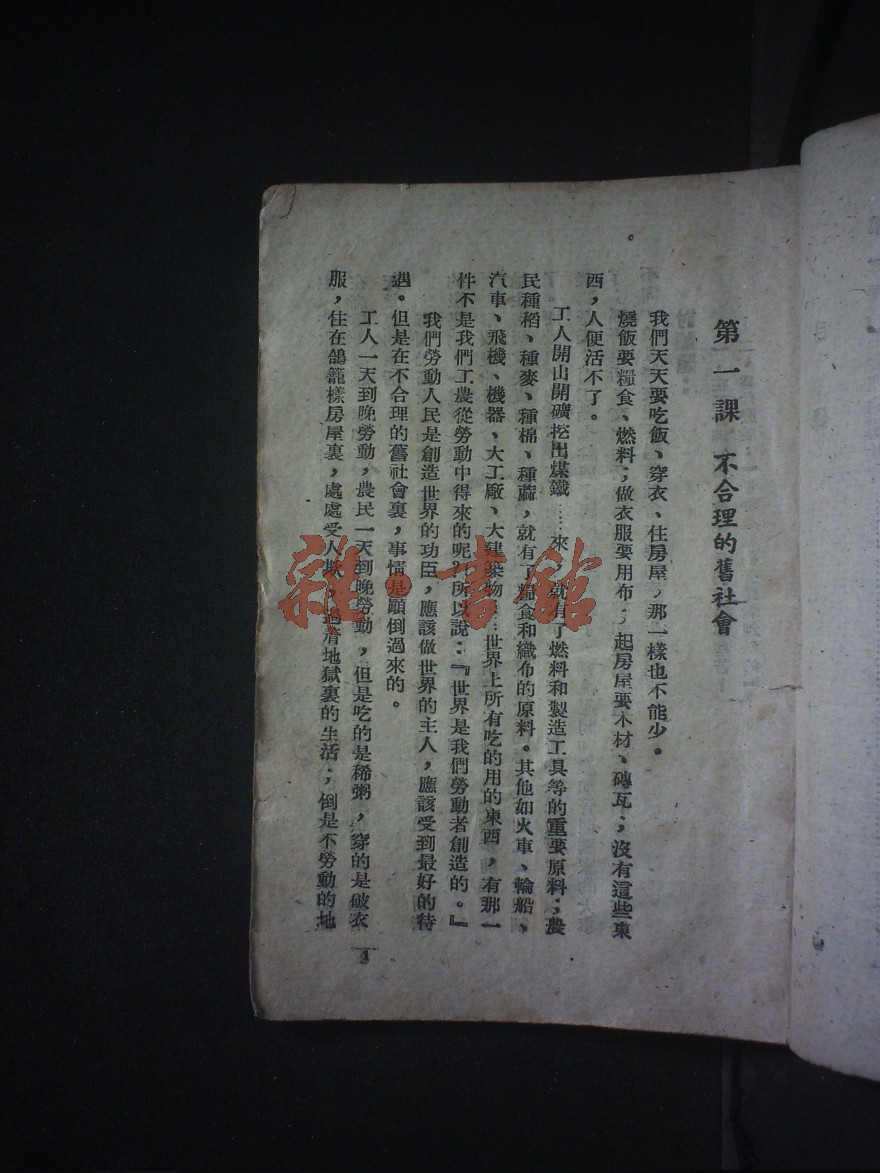 第一課 不合理的舊社會
我們天天要吃飯、穿衣、住房屋，那一樣也不能少。
燒飯要糧食、燃料；做衣服要用布；起房屋要木材、磚瓦；沒有這些東
西，人便活不了。
工人開山開礦挖出煤鐵……來，就有了燃料和製造工具等的重要原料；農
民種稻、種麥、種棉、種蔴，就有了糧食和織布的原料。其他如火車、輪船、
汽車、飛機、機器、大工廠、大建築物……世界上所有吃的用的東西，有那一
件不是我們工農從勞動中得來的呢？所以說：『世界是我們勞動者創造的。』
我們勞動人民是創造世界的功臣，應該做世界的主人，應該受到最好的待
遇。但是在不合理的舊社會裏，事情是顚倒過來的。
工人一天到晚勞動，農民一天到晚勞動，但是吃的是稀粥，穿的是破衣
服，住在鴿籠樣房屋裏，處處受人欺，過着地獄裏的生活；倒是不勞動的地
雜·書館